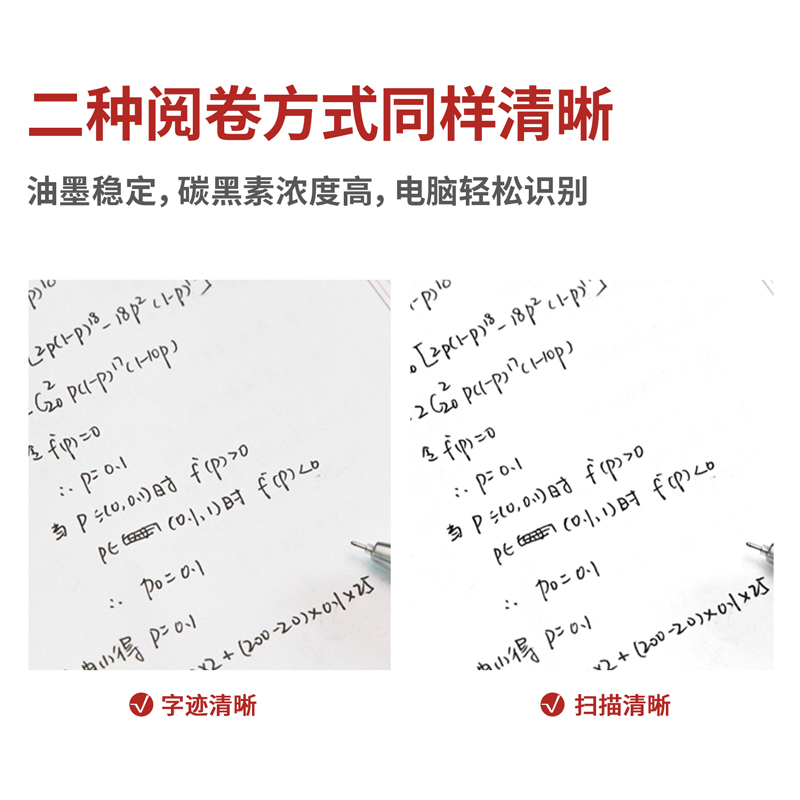 二种阅卷方式同样清晰
油墨稳定，碳黑素浓度高，电脑轻松识别
-p)^10
[2p(1-p)^18 - 18p^2 (1-p)^17]
2C^2_20 p(1-p)^17 (1-10p)
令 f'(p)=0
∴ p=0.1
当 p∈(0,0.1)时 f'(p)>0
p∈ (0.1,1)时 f'(p)<0
∴ p0=0.1
得 p=0.1
×2+(200-20)×0.1×25
字迹清晰
-p)^10
[2p(1-p)^18 - 18p^2 (1-p)^17]
2C^2_20 p(1-p)^17 (1-10p)
令 f'(p)=0
∴ p=0.1
当 p∈(0,0.1)时 f'(p)>0
p∈ (0.1,1)时 f'(p)<0
∴ p0=0.1
得 p=0.1
×2+(200-20)×0.1×25
扫描清晰